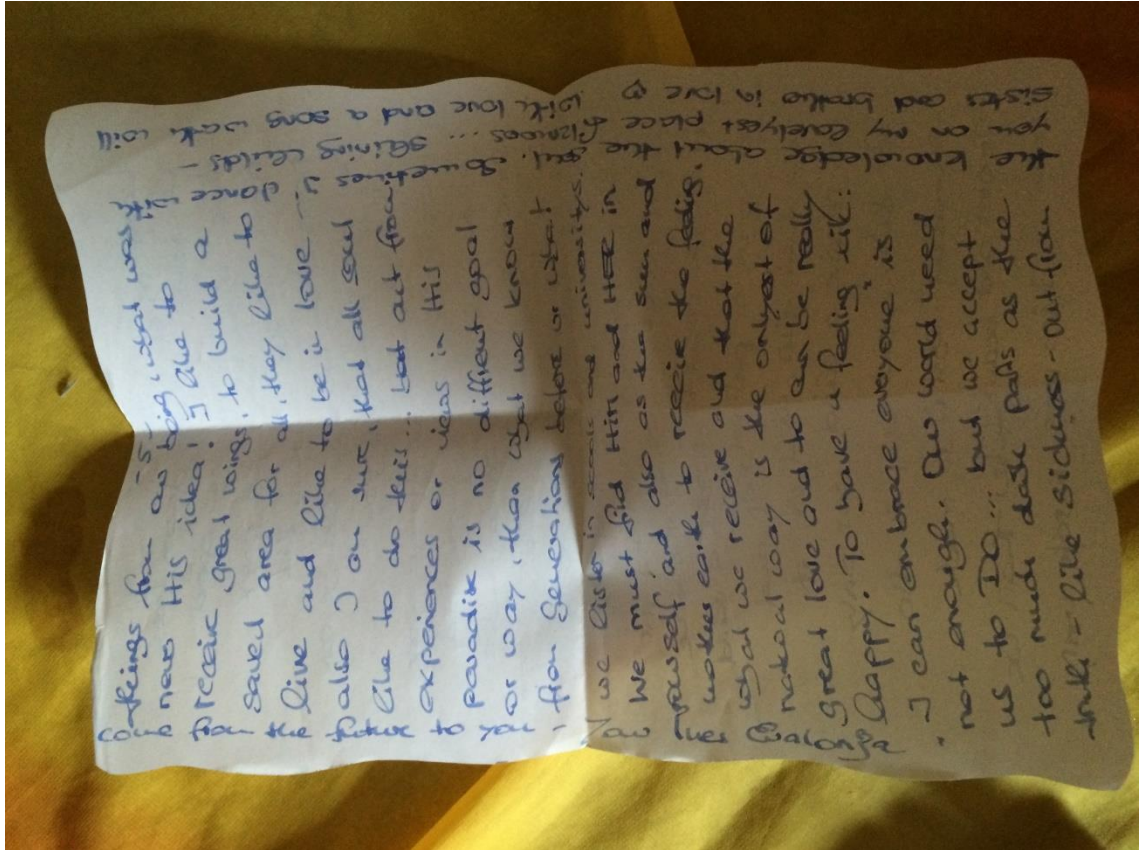 -5-
things from our being, what was
now His idea! I like to
receive great wings, to build a
saved area for all, they like to
live and like to be in love ...
also I am sure, that all soul
like to do this ... but out from
experiences or ideas in His
paradise is no different goal
or way, than what we know
from generations before or what
we listen in schools and universitys.
We must find Him and HER in
yourself and also as the sun and
mother earth to receive the feeling,
what we receive and that the
natural way is the onlyest of
great love and to can be really
happy. To have a feeling, like:
"I can embrace everyone" is
not enough. Our world need
us to DO ... but we accept
too much dark paths as the
truth - like sickness - out from
the knowledge about the soul. Sometimes I dance with
you on my lovelyest place ... shining childs -
sister and brother in love ♡ with love and a song will
come from the future to you, Your